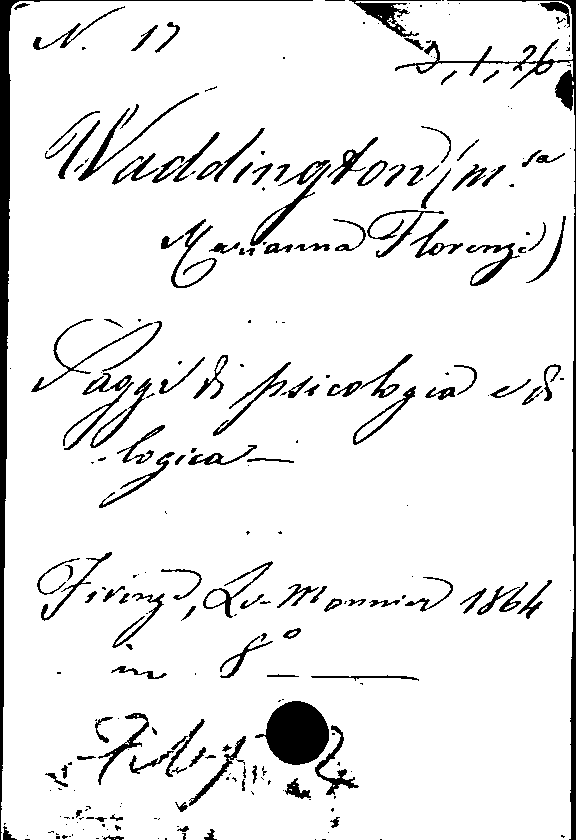 N. 17
D, 1, 26
Waddington (m.sa
Marianna Florenzi)
Saggi di psicologia e di
logica—
Firenze, Le Monnier 1864
in 8°